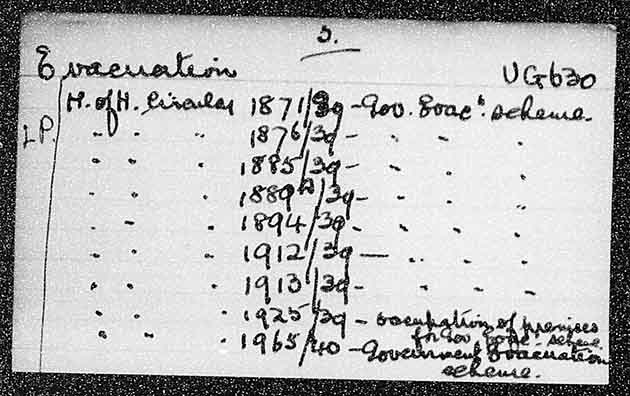 3.
Evacuation UG630
M. of H. Circular 1871/39 - Gov. Evac n. scheme.
L.P. " " " 1876/39 - " " "
" " " 1885/39 - " " "
" " " 1889A/39 - " " "
" " " 1894/39 - " " "
" " " 1912/39 - " " "
" " " 1913/39 - " " "
" " " 1925/39 - occupation of premises
for Gov. Evac. scheme.
" " " 1965/40 - Government Evacuation
scheme.